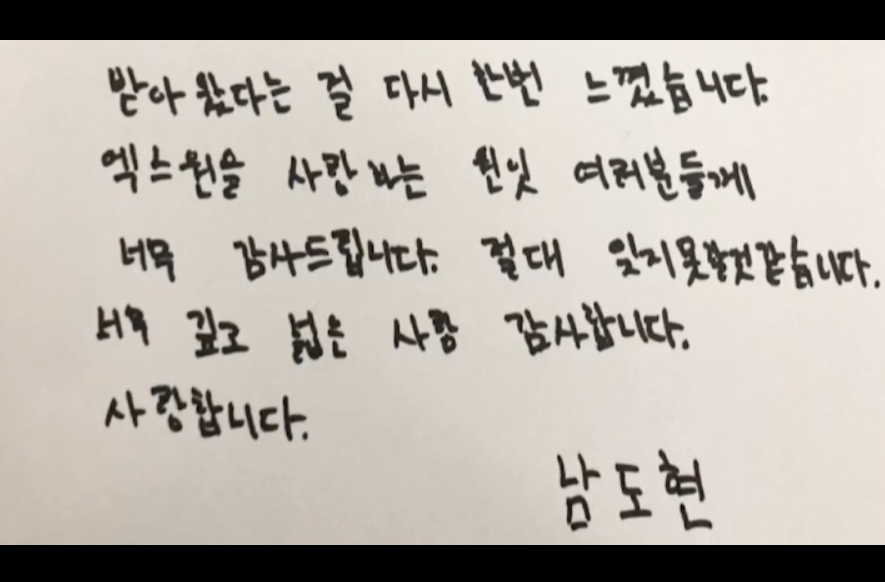 받아 왔다는 걸 다시 한번 느꼈습니다.
엑스원을 사랑하는 원잇 여러분들께
너무 감사드립니다. 절대 잊지못할것같습니다.
너무 깊고 넓은 사랑 감사합니다.
사랑합니다.
남도현